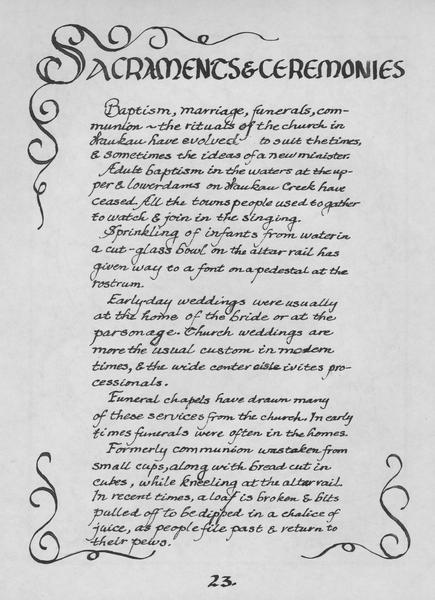 SACRAMENTS & CEREMONIES
Baptism, marriage, funerals, com-
munion ~ the rituals of the church in
Waukau have evolved to suit the times,
& sometimes the ideas of a new minister.
Adult baptism in the waters at the up-
per & lower dams on Waukau Creek have
ceased. All the townspeople used to gather
to watch & join in the singing.
Sprinkling of infants from water in
a cut-glass bowl on the altar rail has
given way to a font on a pedestal at the
rostrum.
Early-day weddings were usually
at the home of the bride or at the
parsonage. Church weddings are
more the usual custom in modern
times, & the wide center aisle ivites pro-
cessionals.
Funeral chapels have drawn many
of these services from the church. In early
times funerals were often in the homes.
Formerly communion was taken from
small cups, along with bread cut in
cubes, while kneeling at the altar rail.
In recent times, a loaf is broken & bits
pulled off to be dipped in a chalice of
juice, as people file past & return to
their pews.
23.